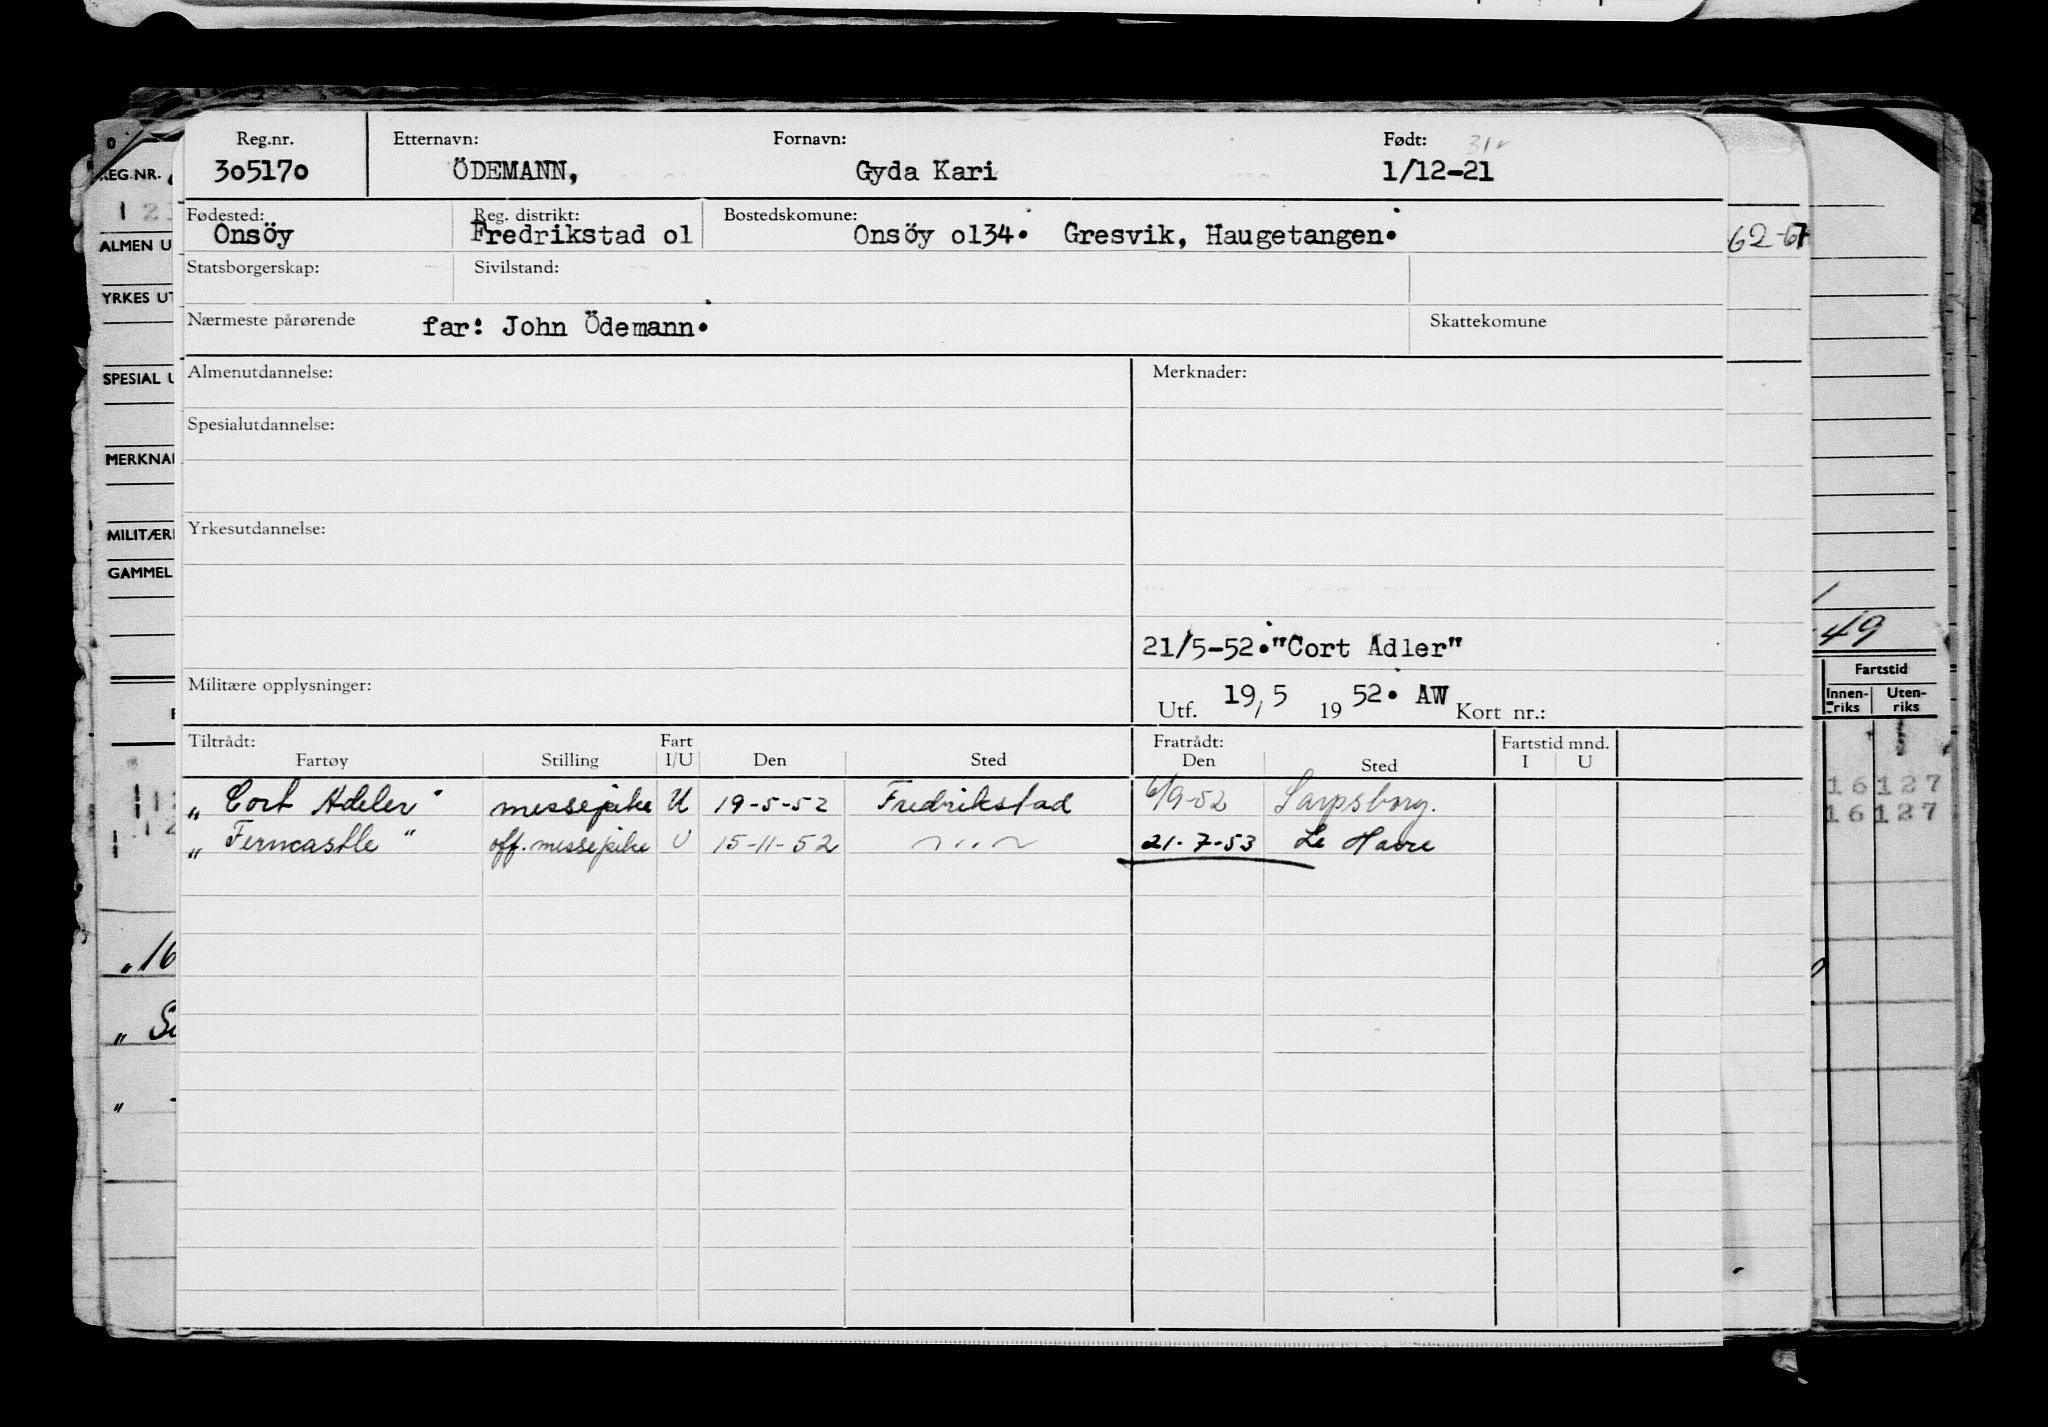 Reg.nr. Etternavn: Fornavn: Født:
305170 ÖDEMANN, Gyda Kari 1/12-21
Fødested: Reg. distrikt: Bostedskomune:
Onsöy Fredrikstad o1 Onsöy o134. Gresvik, Haugetangen.
Statsborgerskap: Sivilstand:
Nærmeste pårørende far: John Ödemann. Skattekomune
Almenutdannelse: Merknader:
Spesialutdannelse:
Yrkesutdannelse:
21/5-52."Cort Adler"
Militære opplysninger:
Utf. 19/5 1952. AW Kort nr.:
Tiltrådt: Fart Fratrådt: Fartstid mnd.
Fartøy Stilling I/U Den Sted Den Sted I U
„ Cort Adeler" messepike U 19-5-52 Fredrikstad 6/9-52 Sarpsborg.
„ Ferncastle " off. messepike U 15-11-52 — " — 21-7-53 Le Havre
REG.NR.
ALMEN U
YRKES UT
SPESIAL U
MERKNA
MILITÆR
GAMMEL
„16
62-67
49
Fartstid
Innen-riks Uten-riks
16 127
16 127